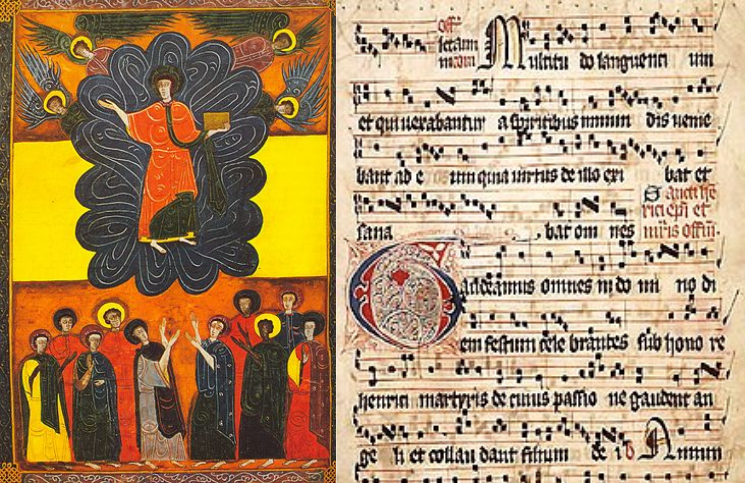 Multitu do languenti um
et qui uexabantur a spiritibus inmun dis uenie
bant ad e um quia uirtus de illo exi bat et
Sancti hen
rici epi et
sana bat om nes mris offm.
Gaudeamus omnes in do mi no di
em festum cele brantes sub hono re
henrici martyris de cuius passio ne gaudent an
ge li et collau dant filium de i